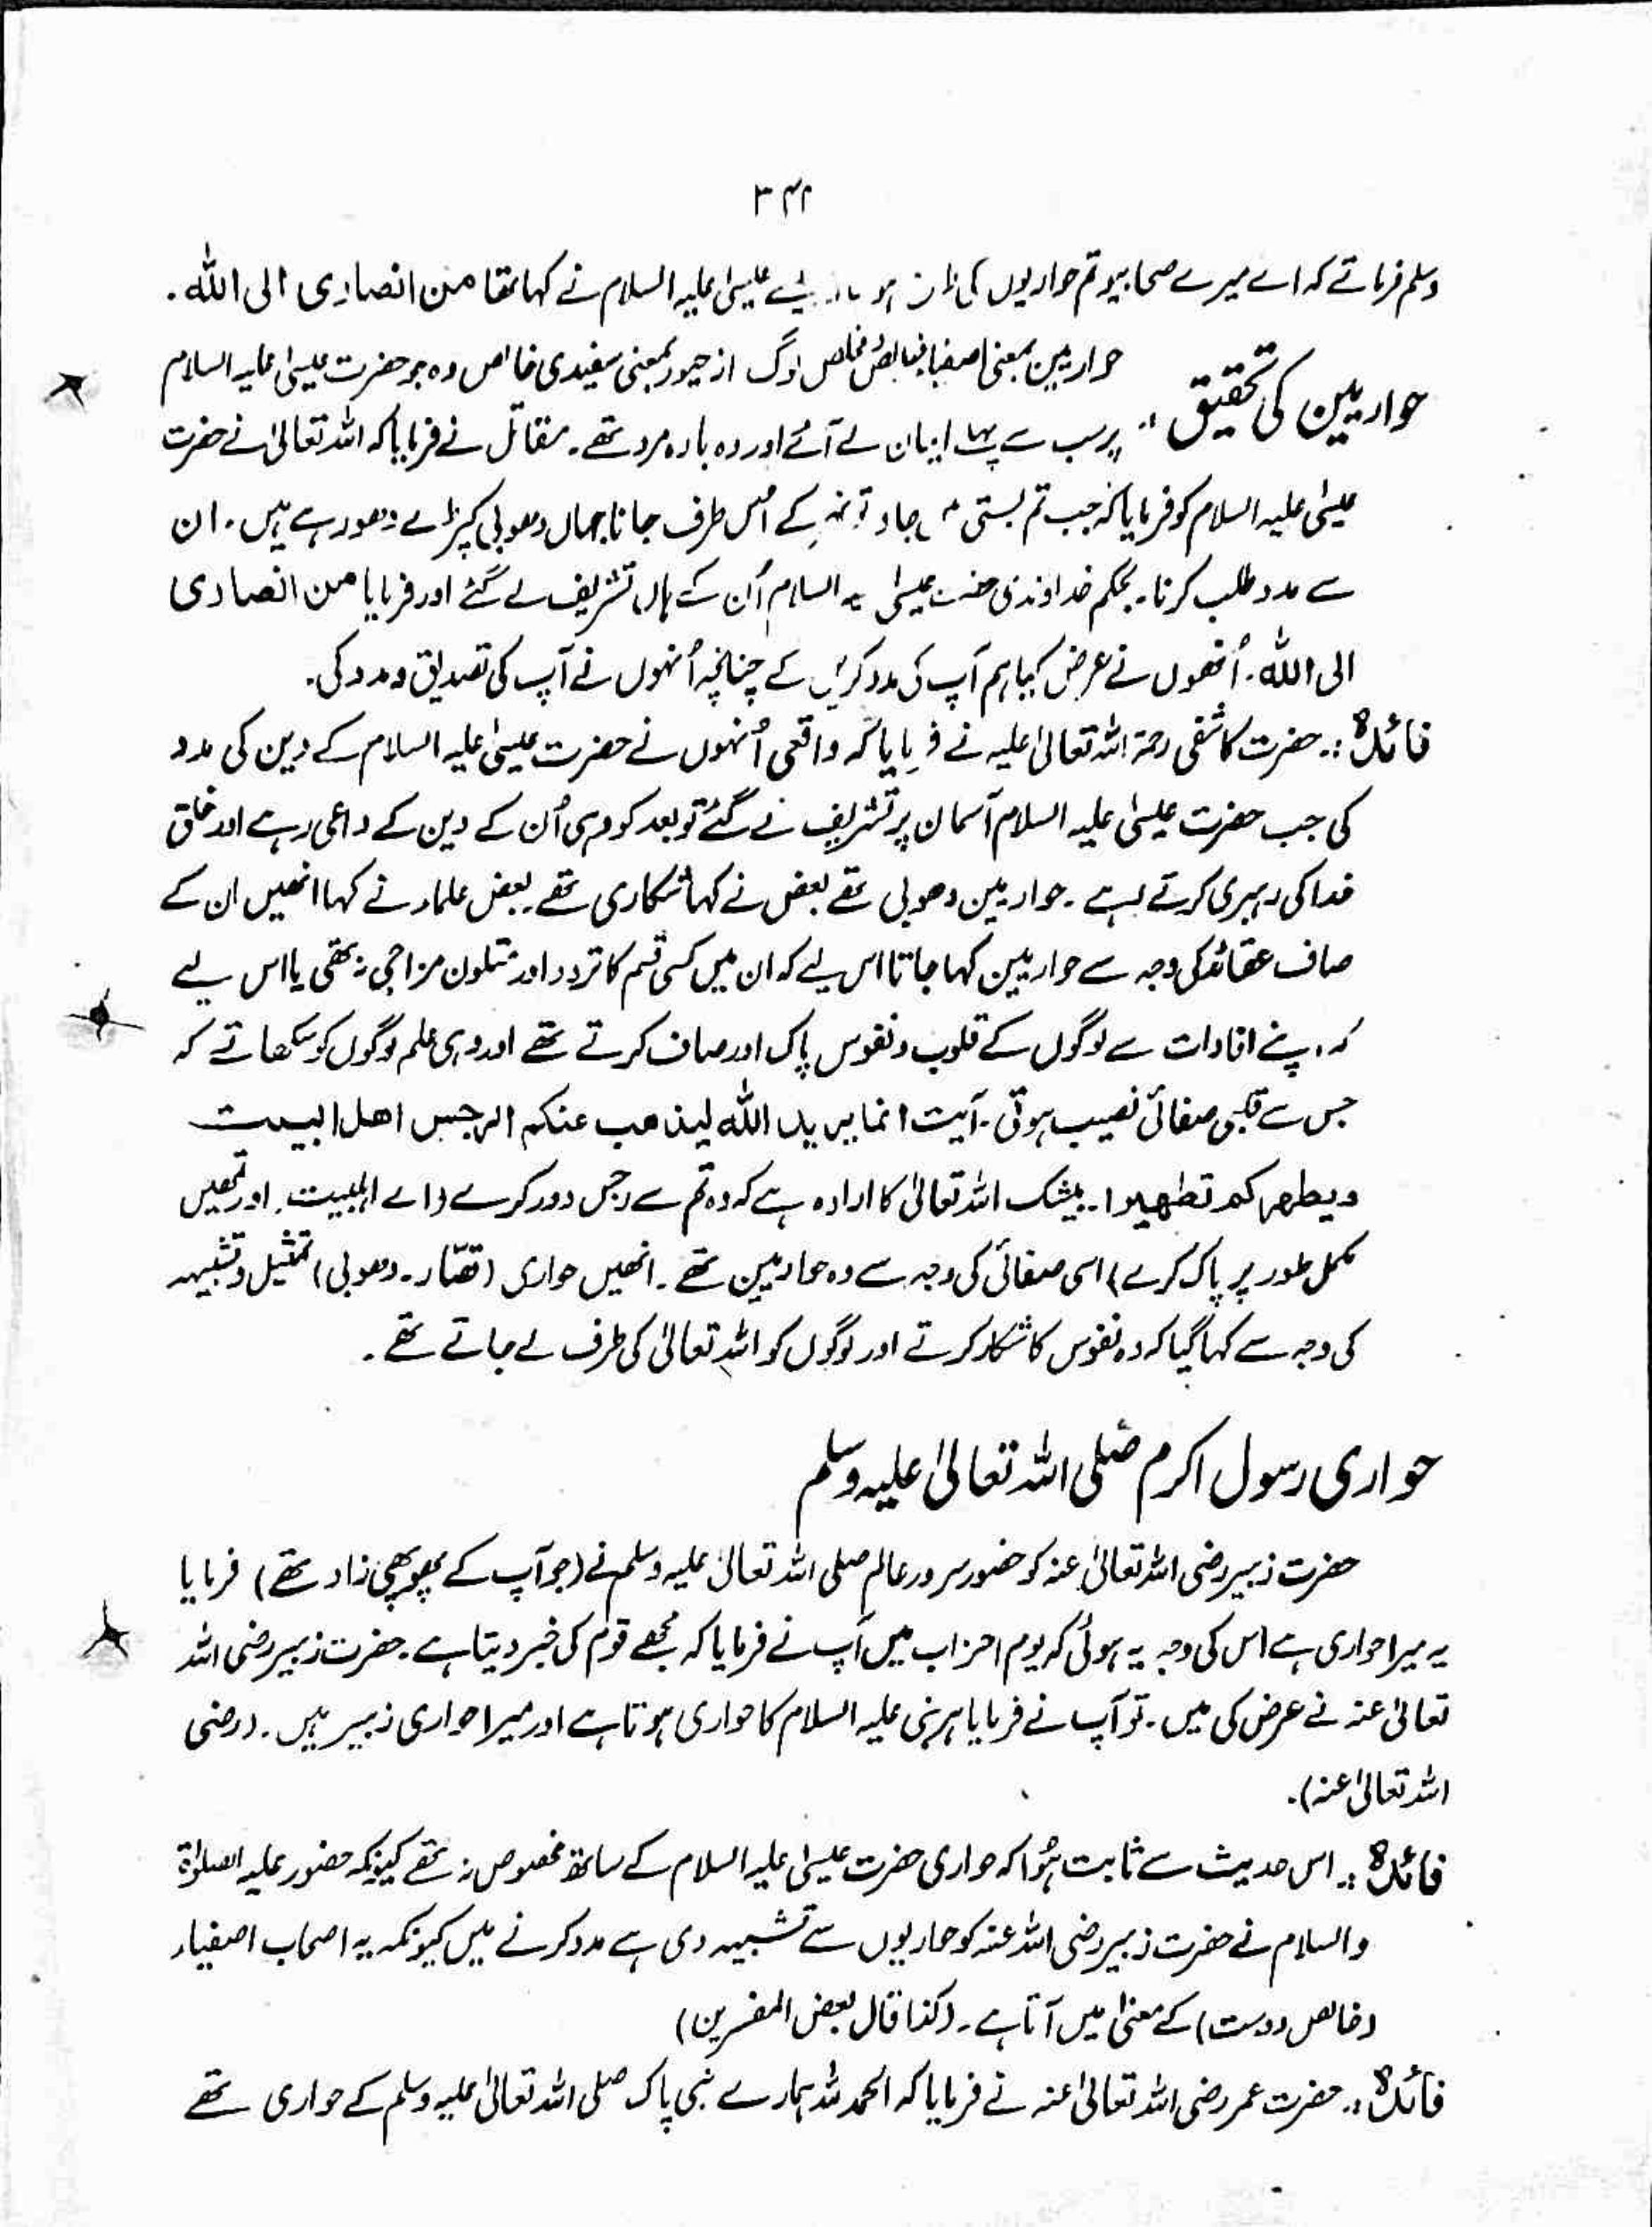 وسلم فرماتے کہ اے میرے صحابیو تم حواریوں کی ہو عیسیٰ علیہ السلام نے کہا تھا من انصاری الی اللہ۔
حواریین کی تحقیق :۔
حواریین بمعنی اصفیا مخلص لوگ از حور بمعنی سفیدی خالص وہ جو حضرت عیسیٰ علیہ السلام
پر سب سے پہلے ایمان لے آئے اور وہ بارہ مرد تھے۔ مقاتل نے فرمایا کہ اللہ تعالیٰ نے حضرت
عیسیٰ علیہ السلام کو فرمایا کہ جب تم بستی جاؤ تو نہر کے اس طرف جانا جہاں دھوبی کپڑے دھو رہے ہیں۔ ان
سے مدد طلب کرنا۔ بحکم خداوندی حضرت عیسیٰ السلام اُن کے ہاں تشریف لے گئے اور فرمایا من انصاری
الی اللہ۔ اُنھوں نے عرض کیا ہم آپ کی مدد کریں گے چنانچہ اُنہوں نے آپ کی تصدیق و مدد کی۔
فائدہ :۔ حضرت کاشفی رحمۃ اللہ تعالیٰ علیہ نے فرمایا کہ واقعی اُنہوں نے حضرت عیسیٰ علیہ السلام کے دین کی مدد
کی جب حضرت عیسیٰ علیہ السلام آسمان پر تشریف لے گئے تو بعد کو وہی اُن کے دین کے داعی رہے اور خلق
خدا کی رہبری کرتے رہے۔ حواریین دھوبی تھے بعض نے کہا شکاری تھے۔ بعض علماء نے کہا انھیں ان کے
صاف عقائد کی وجہ سے حواریین کہا جاتا اس لیے کہ ان میں کسی قسم کا تردد اور متلون مزاجی نہ تھی یا اس لیے
کہ اپنے افادات سے لوگوں کے قلوب و نفوس پاک اور صاف کرتے تھے اور وہی علم لوگوں کو سکھاتے کہ
جس سے قلبی صفائی نصیب ہوتی۔ آیت انما یرید اللہ لیذھب عنکم الرجس اھل البیت
ویطھرکم تطھیرا۔ بیشک اللہ تعالیٰ کا ارادہ ہے کہ وہ تم سے رجس دور کرے (اے اہلبیت اور تمھیں
مکمل طور پر پاک کرے) اسی صفائی کی وجہ سے وہ حواریین تھے۔ انھیں حواری (قصّار۔ دھوبی) تمثیل و تشبیہہ
کی وجہ سے کہا گیا کہ وہ نفوس کا شکار کرتے اور لوگوں کو اللہ تعالیٰ کی طرف لے جاتے تھے۔
حواری رسول اکرم صلی اللہ تعالیٰ علیہ وسلم
حضرت زبیر رضی اللہ تعالیٰ عنہ کو حضور سرور عالم صلی اللہ تعالیٰ علیہ وسلم نے (جو آپ کے پھوپھی زاد تھے) فرمایا
یہ میرا حواری ہے اس کی وجہ یہ ہوئی کہ یوم احزاب میں آپ نے فرمایا کہ مجھے قوم کی خبر دیتا ہے۔ حضرت زبیر رضی اللہ
تعالیٰ عنہ نے عرض کی میں۔ تو آپ نے فرمایا ہر نبی علیہ السلام کا حواری ہوتا ہے اور میرا حواری زبیر ہیں۔ (رضی
اللہ تعالیٰ عنہ)۔
فائدہ :۔ اس حدیث سے ثابت ہُوا کہ حواری حضرت عیسیٰ علیہ السلام کے ساتھ مخصوص نہ تھے کیونکہ حضور علیہ الصلوٰۃ
والسلام نے حضرت زبیر رضی اللہ عنہ کو حواریوں سے تشبیہہ دی ہے مدد کرنے میں کیونکہ یہ اصحاب اصفیاء
(خالص دوست) کے معنیٰ میں آتا ہے۔ (کذا قال بعض المفسرین)
فائدہ :۔ حضرت عمر رضی اللہ تعالیٰ عنہ نے فرمایا کہ الحمد للہ ہمارے نبی پاک صلی اللہ تعالیٰ علیہ وسلم کے حواری تھے